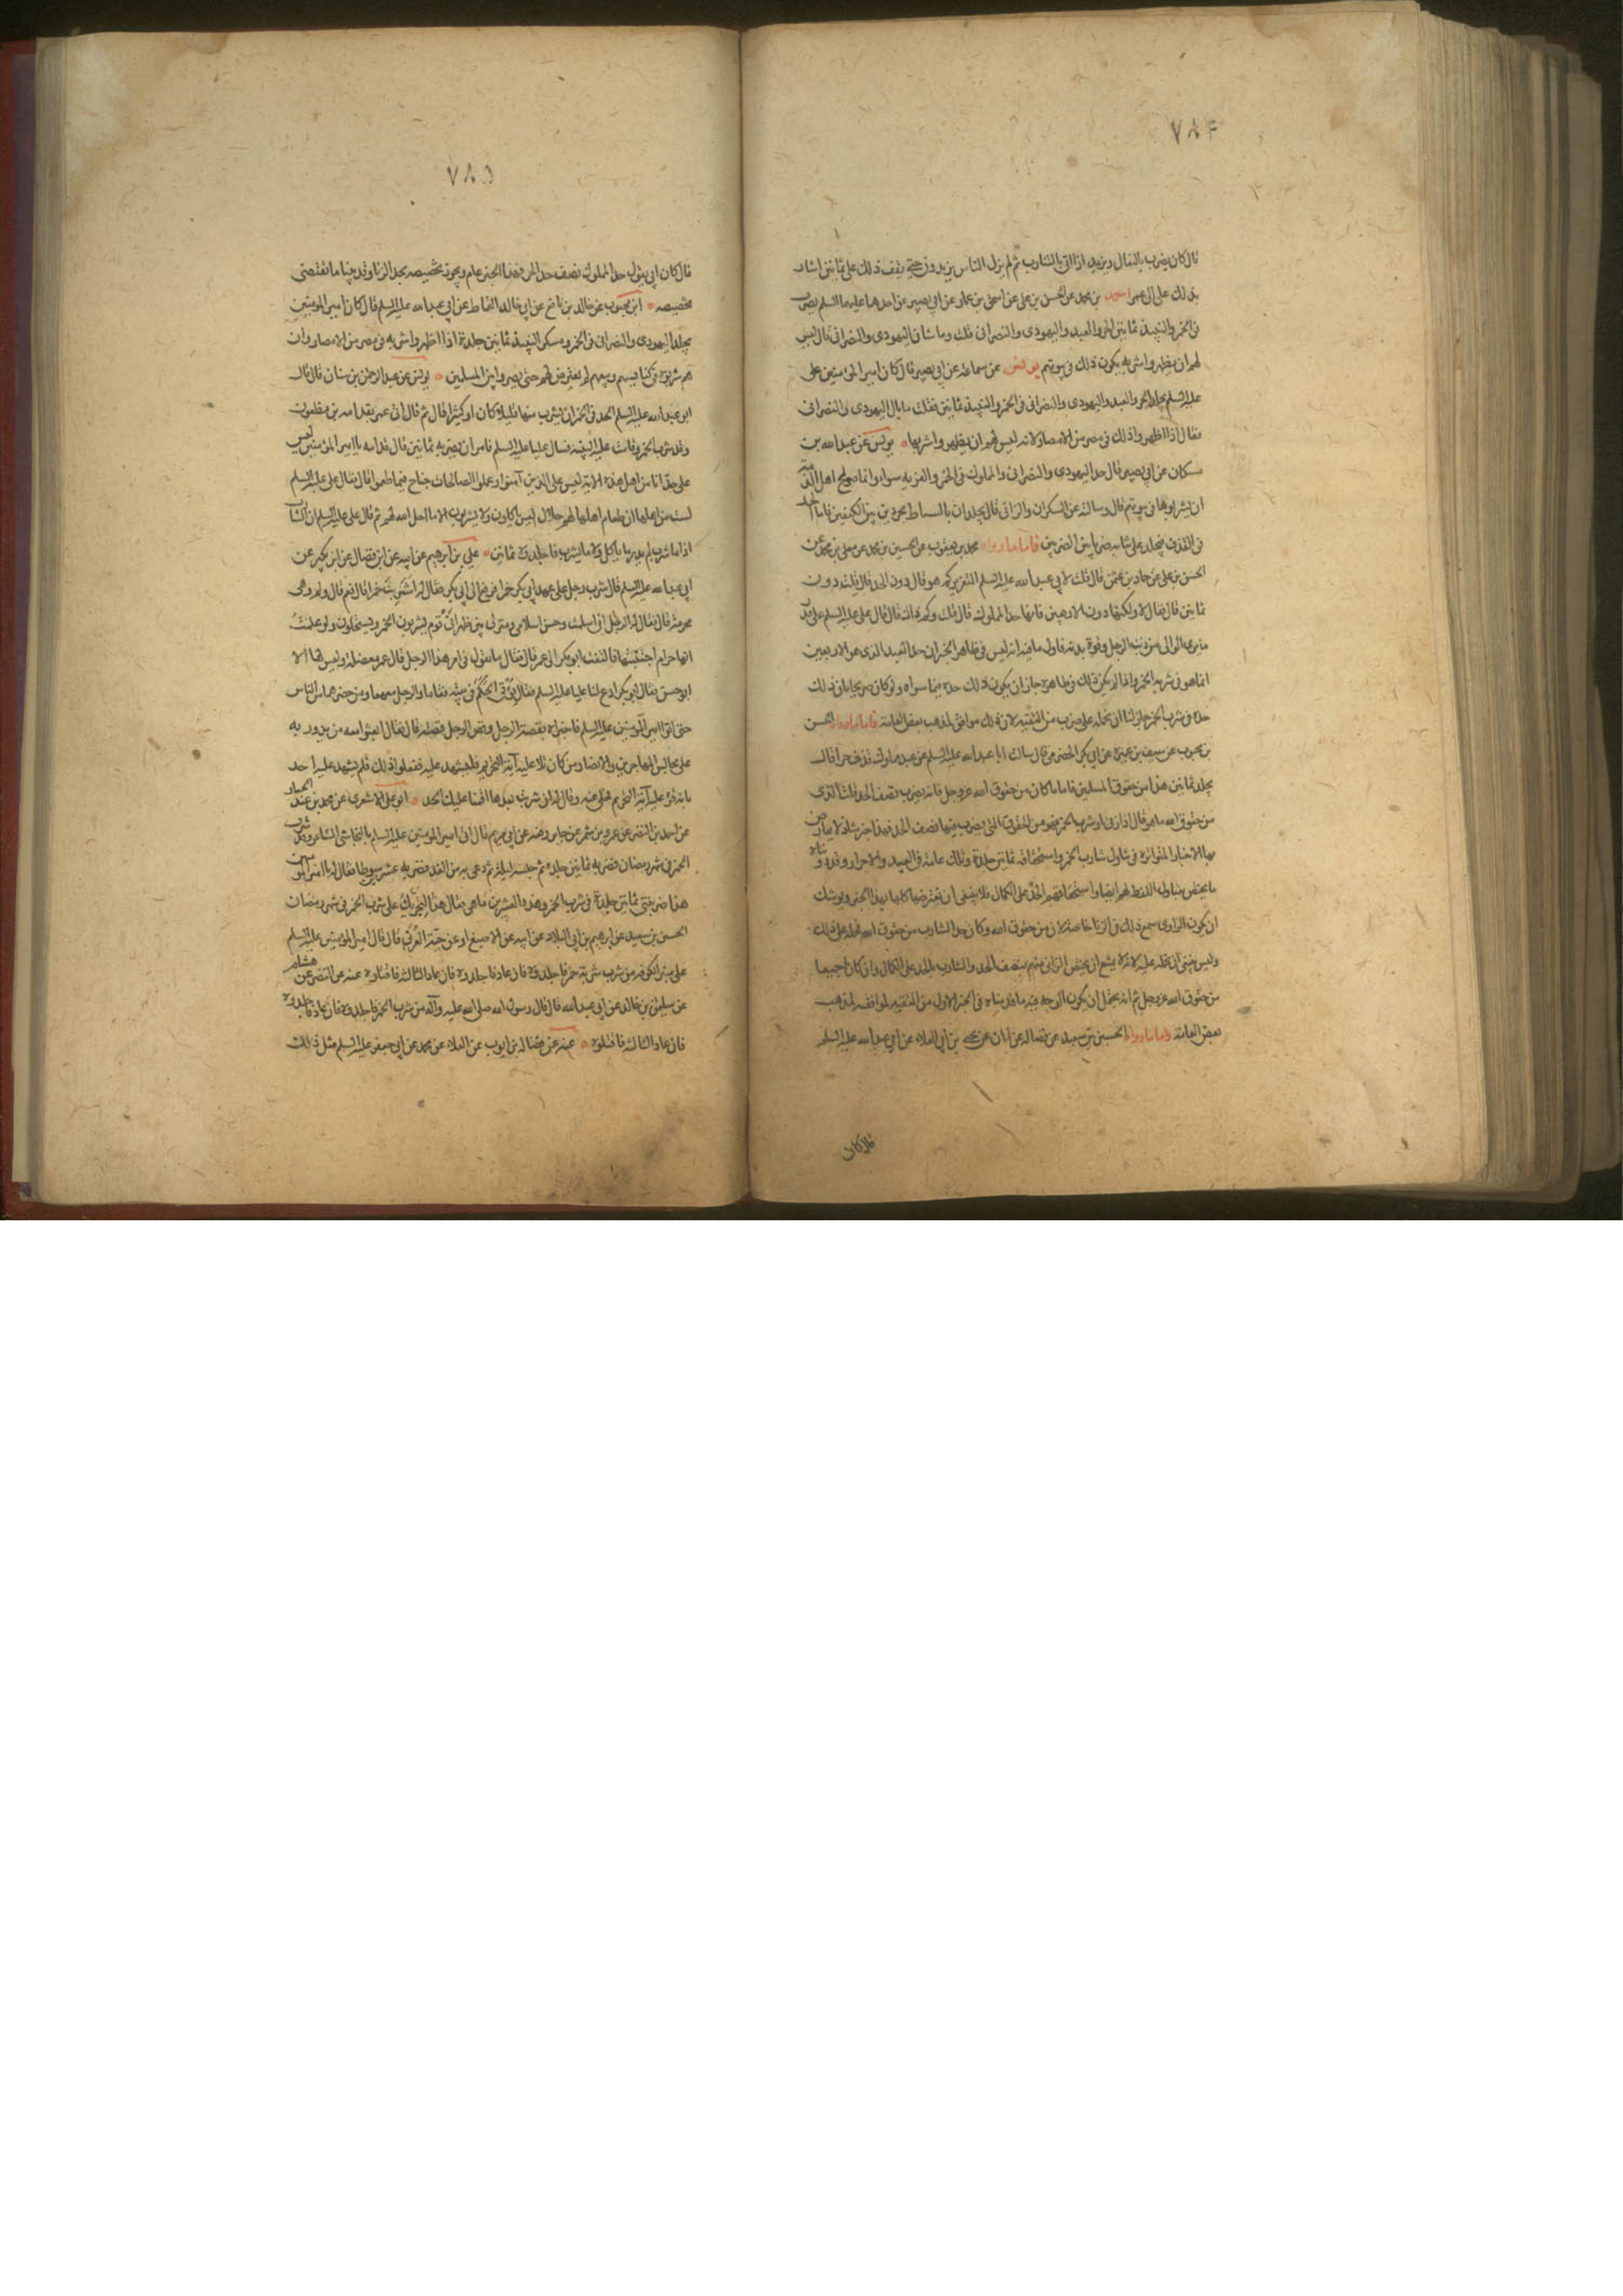 ٧٨۴
قال كان يضرب بالنعال ويزيد اذا اتى بالشارب ثم لم يزل الناس يزيدون حتى يقف ذلك على ثمانين اشار
بذلك على عمر احمد بن محمد عن الحسن بن على عن اسحق بن عمار عن ابي بصير عن احدهما عليهما السلم يضرب
فى الخمر والنبيذ ثمانين الحر والعبد واليهودى والنصرانى قلت وما شان اليهودى والنصرانى قال ليس
لهم ان يظهروا شربه يكون ذلك فى بيوتهم يونس عن سماعة عن ابي بصير قال كان امير المؤمنين على
عليه السلم يجلد الحر والعبد واليهودى والنصرانى فى الخمر والنبيذ ثمانين فقلت ما بال اليهودى والنصرانى
فقال اذا اظهروا ذلك فى مصر من الامصار لانه ليس لهم ان يظهروا شربها يونس عن عبد الله بن
مسكان عن ابي بصير قال حد اليهودى والنصرانى والمملوك فى الخمر والفريه سواء وانما صولح اهل الذمة
ان يشربوها فى بيوتهم قال وسالته عن السكران والزانى قال يجلدان بالسياط مجردين بين الكتفين فاما الحد
فى القذف فيجلد على ثيابه ضربا بين الضربين فاما ما رواه محمد بن يعقوب عن الحسين بن محمد عن معلى بن محمد عن
الحسن بن على عن حماد بن عثمن قال قلت لابي عبد الله عليه السلم التعزير كم هو قال دون الحد قال قلت دون
ثمانين قال فقال لا ولكنها دون الاربعين فانها حد المملوك قال قلت وكم ذاك قال قال على عليه السلم على قدر
ما يرى الوالى من ذنب الرجل وقوة بدنه فاول ما فيه انه ليس فى ظاهر الخبر ان حد العبد الذى هو الاربعين
انما هو فى شربه الخمر واذا لم يكن ذلك فى ظاهره جاز ان يكون ذلك حده فيما سواه ولو كان صريحا بان ذلك
حده فى شرب الخمر جاز لنا ان نحمله على ضرب من التقيه لان ذلك موافق لمذهب بعض العامة فاما ما رواه الحسن
بن محبوب عن سيف بن عميرة عن ابي بكر الحضرمى قال سالت ابا عبد الله عليه السلم عن عبد مملوك قذف حرا قال
يجلد ثمانين هذا من حقوق المسلمين فاما ما كان من حقوق الله عز وجل فانه يضرب نصف الحد قلت الذى
من حقوق الله ما هو قال اذا زنى او شرب الخمر فهو من الحقوق التى يضرب فيها نصف الحد فهذا خبر شاذ لا يعارض
بها الاخبار المتواترة فى تناول شارب الخمر واستحقاقه ثمانين جلدة وتلك عامة فى العبيد والاحرار وقد روينا
ما يختص بتناول اللفظ لهم ايضا واستحقاقهم الحد على الكمال فلا ينبغى ان يعترضها كلها بهذا الخبر ويوشك
ان يكون الراوى سمع ذلك فى الزنا خاصة لان من حقوق الله وكان حد الشارب من حقوق الله فحمله على ذلك
وليس ينبغى ان يحمله عليه لانه لا يمتنع ان يختص الزانى منهم بنصف الحد والشارب بالحد على الكمال وان كانا جميعا
من حقوق الله عز وجل ثم انه يحتمل ان يكون الوجه فيه ما قدمناه فى الخبر الاول من التقيه لموافقه لمذهب
بعض العامة واما ما رواه الحسين بن سعيد عن فضاله عن ابان عن يحيى بن ابي العلاء عن ابي عبد الله عليه السلم
قال كان
٧٨۵
قال كان ابي يقول حد المملوك نصف حد الحر فهذا الخبر عام ويجوز تخصيصه بحد الزنا وقد بينا ما يقتضى
تخصيصه ابن محبوب عن خالد بن نافع عن ابي خالد القماط عن ابي عبد الله عليه السلم قال كان امير المومنين
يجلد اليهودى والنصرانى فى الخمر ومسكر النبيذ ثمانين جلدة اذا اظهروا شربه فى مصر من الامصار وان
هم شربوه فى كنايسهم وبيعهم لم يعترض لهم حتى يصيروا بين المسلمين يونس عن عبد الرحمن بن سنان قال قال
ابو عبد الله عليه السلم الحد فى الخمر ان يشرب منها قليلا كان او كثيرا قال ثم قال اتى عمر بقدامه بن مظعون
وقد شرب الخمر وقامت عليه البينة فسال عليا عليه السلم فامر ان يضربه ثمانين فقال قدامه يا امير المؤمنين ليس
على حد انا من اهل هذه الاية ليس على الذين آمنوا وعملوا الصالحات جناح فيما طعموا قال فقال على عليه السلم
لست من اهلها ان طعام اهلها لهم حلال ليس ياكلون ولا يشربون الا ما احل الله لهم ثم قال على عليه السلم ان الشارب
اذا ما شرب لم يدر ما ياكل ولا ما يشرب فاجلدوه ثمانين على بن ابرهيم عن ابيه عن ابن فضال عن ابن بكير عن
ابي عبد الله عليه السلم قال شرب رجل على عهد ابي بكر خمرا فرفع الى ابي بكر فقال له اشربت خمرا قال نعم قال ولم وهى
محرمة قال فقال له الرجل انى اسلمت وحسن اسلامى ومنزلى بين ظهرانى قوم يشربون الخمر ويستحلون ولو علمت
انها حرام اجتنبتها فالتفت ابو بكر الى عمر قال فقال ما تقول فى امر هذا الرجل قال عمر معضلة وليس لها الا
ابو حسن فقال ابو بكر ادع لنا عليا عليه السلم فقال يؤتى الحكم فى بيته فقاما والرجل معهما ومن حضرهما من الناس
حتى اتوا امير المؤمنين عليه السلم فاخبراه بقصة الرجل وقص الرجل قصته قال فقال ابعثوا معه من يدور به
على مجالس المهاجرين والانصار ومن كان تلا عليه آية التحريم فليشهد عليه ففعلوا ذلك فلم يشهد عليه احد
بانه قرء عليه آية التحريم فخلى عنه وقال له ان شربت بعدها اقمنا عليك الحد ابو على الاشعرى عن محمد بن عبد الجبار
عن احمد بن النضر عن عمرو بن شمر عن جابر رفعه عن ابي مريم قال اتى امير المومنين عليه السلم بالنجاشى الشاعر وقد شرب
الخمر فى شهر رمضان فضربه ثمانين جلدة ثم حبسه ليلة ثم دعى به من الغد فضربه عشرين سوطا فقال له يا امير المؤمنين
هذا ضربتنى ثمانين جلدة فى شرب الخمر وهذه العشرين ما هى فقال هذا لتجريك على شرب الخمر فى شهر رمضان
الحسين بن سعيد عن ابرهيم بن ابي البلاد عن ابيه عن الاصبغ او عن حبة العرنى قال قال امير المومنين عليه السلم
على منبر الكوفه من شرب شربة خمر فاجلدوه فان عاد فاجلدوه فان عاد الثالثه فاقتلوه عنه عن النضر عن هشام
عن سليمن بن خالد عن ابي عبد الله قال قال رسول الله صلى الله عليه وآله من شرب الخمر فاجلدوه فان عاد فاجلدوه
فان عاد الثالثه فاقتلوه عنه عن فضاله بن ايوب عن العلاء عن محمد عن ابي جعفر عليه السلم مثل ذلك